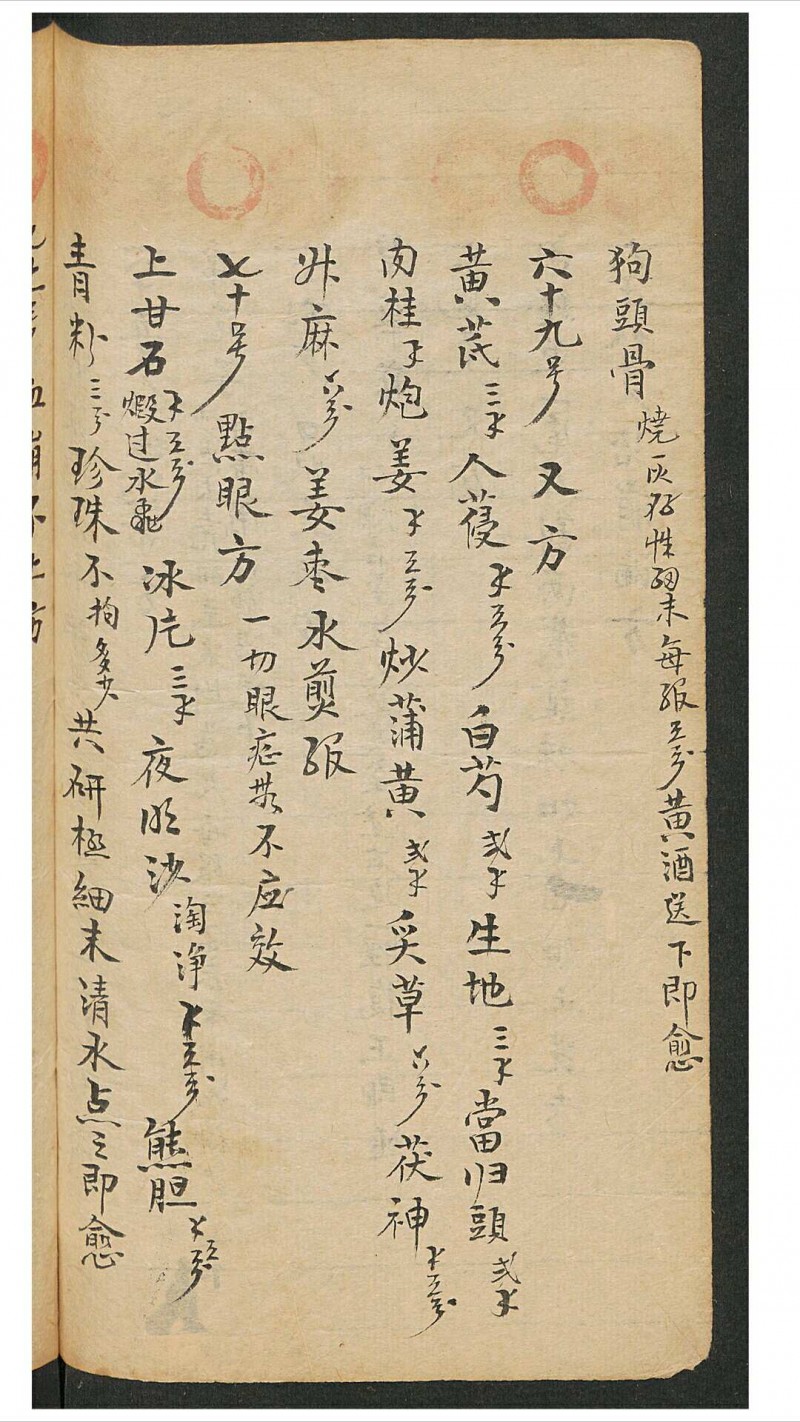 狗頭骨 燒灰存性細末每服五分黄酒送下即愈
六十九号 又方
黄芪三才人葠才五分白芍弍才生地三才當归頭弍才
肉桂才炮姜才五分炒蒲黄弍才炙草六分茯神才五分
升麻六分姜枣水煎服
七十号 點眼方 一切眼症無不应效
上甘石才五分煅过水飛冰片三才夜明沙淘净才五分熊胆才五分
青粉三分珍珠不拘多少共研極細末清水点之即愈